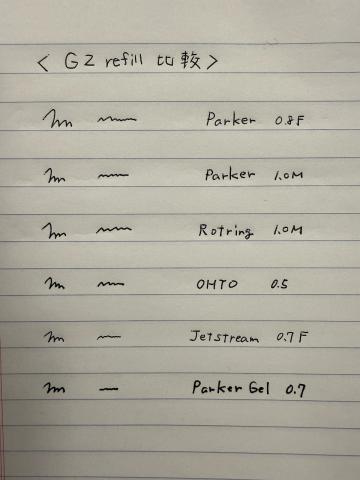 < G2 refill 比較 >
Parker 0.8F
Parker 1.0M
Rotring 1.0M
OHTO 0.5
Jetstream 0.7F
Parker Gel 0.7